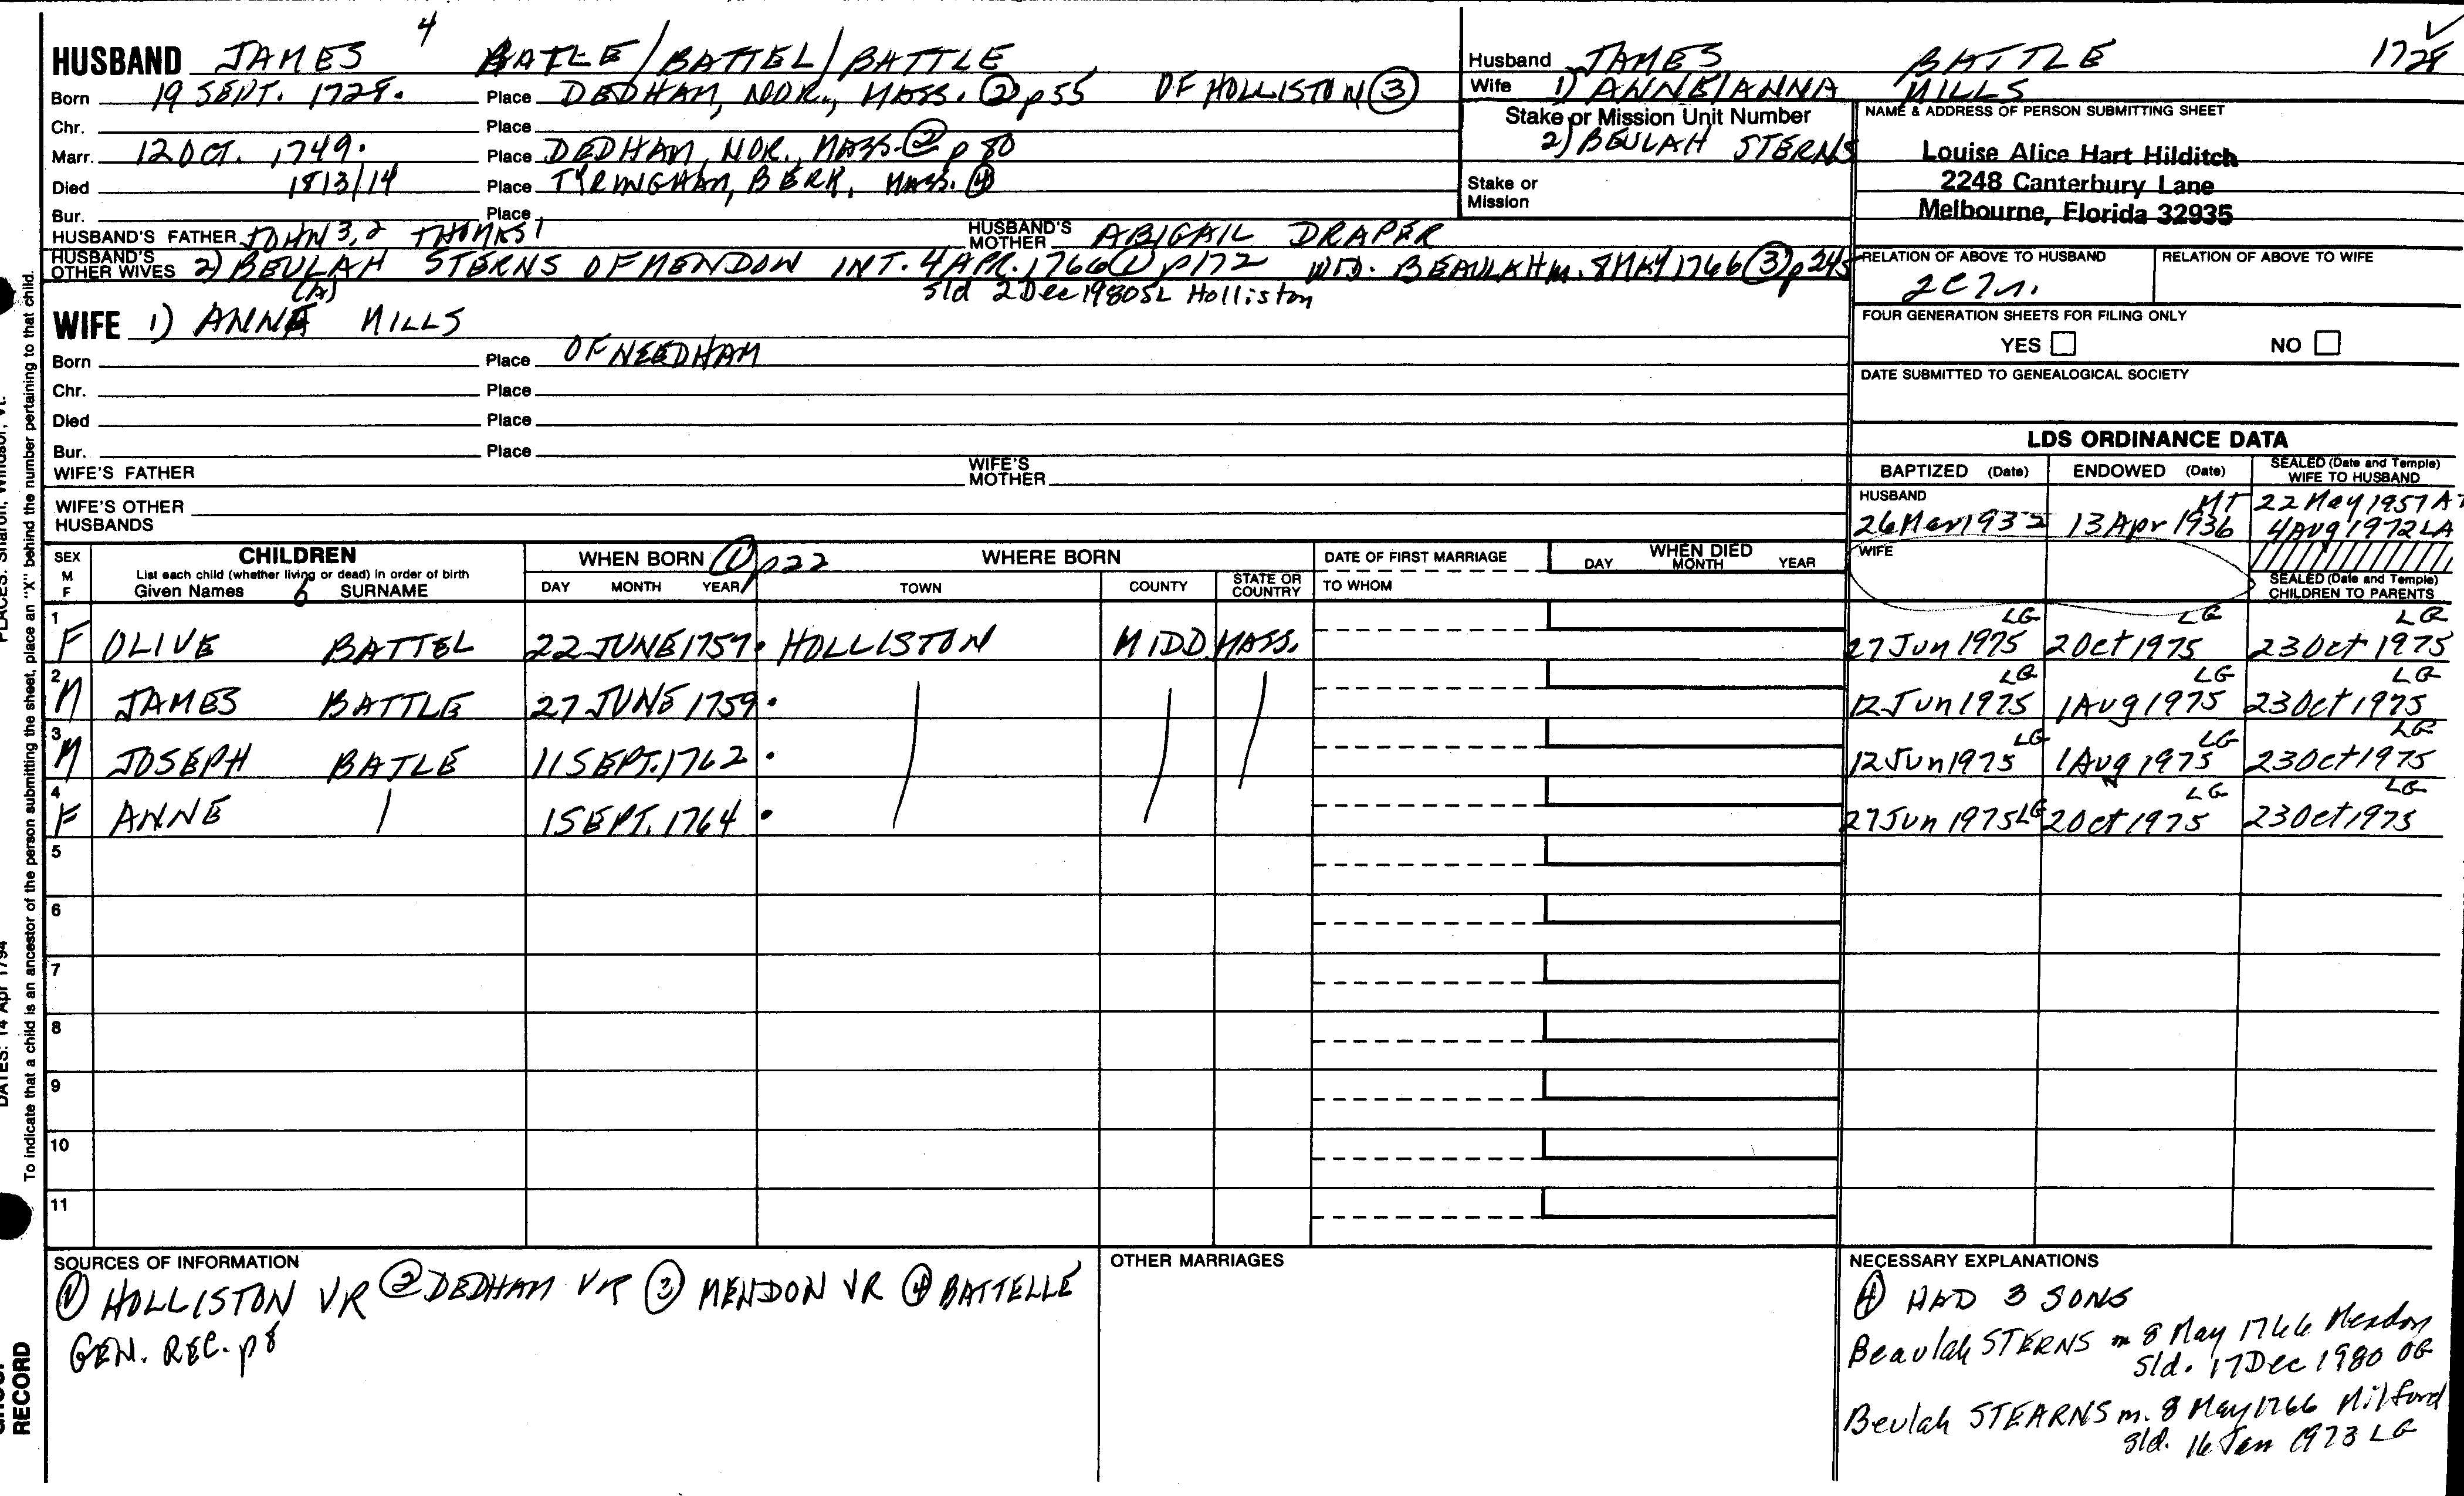 4
HUSBAND JAMES BATLE/BATTEL/BATTLE
Born 19 SEPT. 1728. Place DEDHAM, NOR., MASS. ② p55 OF HOLLISTON ③
Chr. Place
Marr. 12 OCT. 1749. Place DEDHAM, NOR., MASS. ② p 80
Died 1813/14 Place TYRINGHAM, BERK, MASS. ④
Bur. Place
HUSBAND'S FATHER JOHN 3,2 THOMAS 1 HUSBAND'S MOTHER ABIGAIL DRAPER
HUSBAND'S OTHER WIVES 2) BEULAH STERNS OF MENDON INT. 4 APR. 1766 ① p172 WID. BEAULAH m. 8 MAY 1766 ③ p245
(A) sld 2 Dec 1980 SL Holliston
WIFE 1) ANNE MILLS
Born Place OF NEEDHAM
Chr. Place
Died Place
Bur. Place
WIFE'S FATHER WIFE'S MOTHER
WIFE'S OTHER HUSBANDS
Husband JAMES BATTLE 1728
Wife 1) ANNE/ANNA MILLS
Stake or Mission Unit Number
2) BEULAH STERNS
Stake or Mission
NAME & ADDRESS OF PERSON SUBMITTING SHEET
Louise Alice Hart Hilditch
2248 Canterbury Lane
Melbourne, Florida 32935
RELATION OF ABOVE TO HUSBAND RELATION OF ABOVE TO WIFE
2C7r.
FOUR GENERATION SHEETS FOR FILING ONLY
YES NO
DATE SUBMITTED TO GENEALOGICAL SOCIETY
LDS ORDINANCE DATA
BAPTIZED (Date) ENDOWED (Date) SEALED (Date and Temple) WIFE TO HUSBAND
HUSBAND MT 22 May 1957 AZ
26 Mar 1932 13 Apr 1936 4 Aug 1972 LA
WIFE
SEALED (Date and Temple) CHILDREN TO PARENTS
SEX M F CHILDREN WHEN BORN ① p22 WHERE BORN DATE OF FIRST MARRIAGE WHEN DIED
List each child (whether living or dead) in order of birth
Given Names 6 SURNAME DAY MONTH YEAR TOWN COUNTY STATE OR COUNTRY TO WHOM DAY MONTH YEAR
1 F OLIVE BATTEL 22 JUNE 1757. HOLLISTON MIDD. MASS. 27 Jun 1975 LG 2 Oct 1975 LG 23 Oct 1975 LG
2 M JAMES BATTLE 27 JUNE 1759. 12 Jun 1975 LG 1 Aug 1975 LG 23 Oct 1975 LG
3 M JOSEPH BATLE 11 SEPT. 1762. 12 Jun 1975 LG 1 Aug 1975 LG 23 Oct 1975 LG
4 F ANNE 1 SEPT. 1764. 27 Jun 1975 LG 2 Oct 1975 LG 23 Oct 1975 LG
5
6
7
8
9
10
11
SOURCES OF INFORMATION
① HOLLISTON VR ② DEDHAM VR ③ MENDON VR ④ BATTELLE
GEN. REC. p8
OTHER MARRIAGES
NECESSARY EXPLANATIONS
④ HAD 3 SONS
Beaulah STERNS m 8 May 1766 Mendon
sld. 17 Dec 1980 OG
Beulah STEARNS m. 8 May 1766 Milford
sld. 16 Jan 1973 LG
PLACES: Sharon, Windsor, Vt.
To indicate that a child is an ancestor of the person submitting the sheet, place an "X" behind the number pertaining to that child.
DATES: 14 Apr 1794
GROUP RECORD